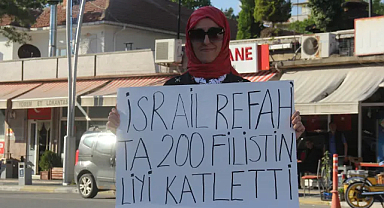 ANE
ANE
İSRAİL REFAH
TA 200 FİLİSTİN
LİYİ KATLETTİ